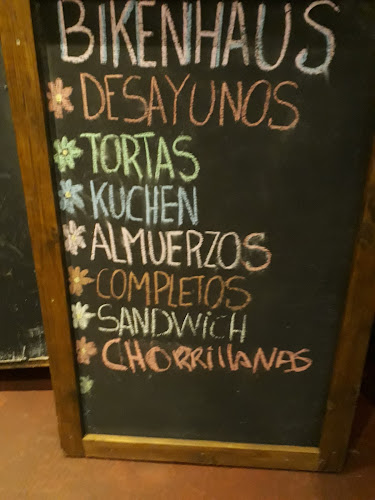 BIKENHAUS
DESAYUNOS
TORTAS
KUCHEN
ALMUERZOS
COMPLETOS
SANDWiCH
CHORRillANAS